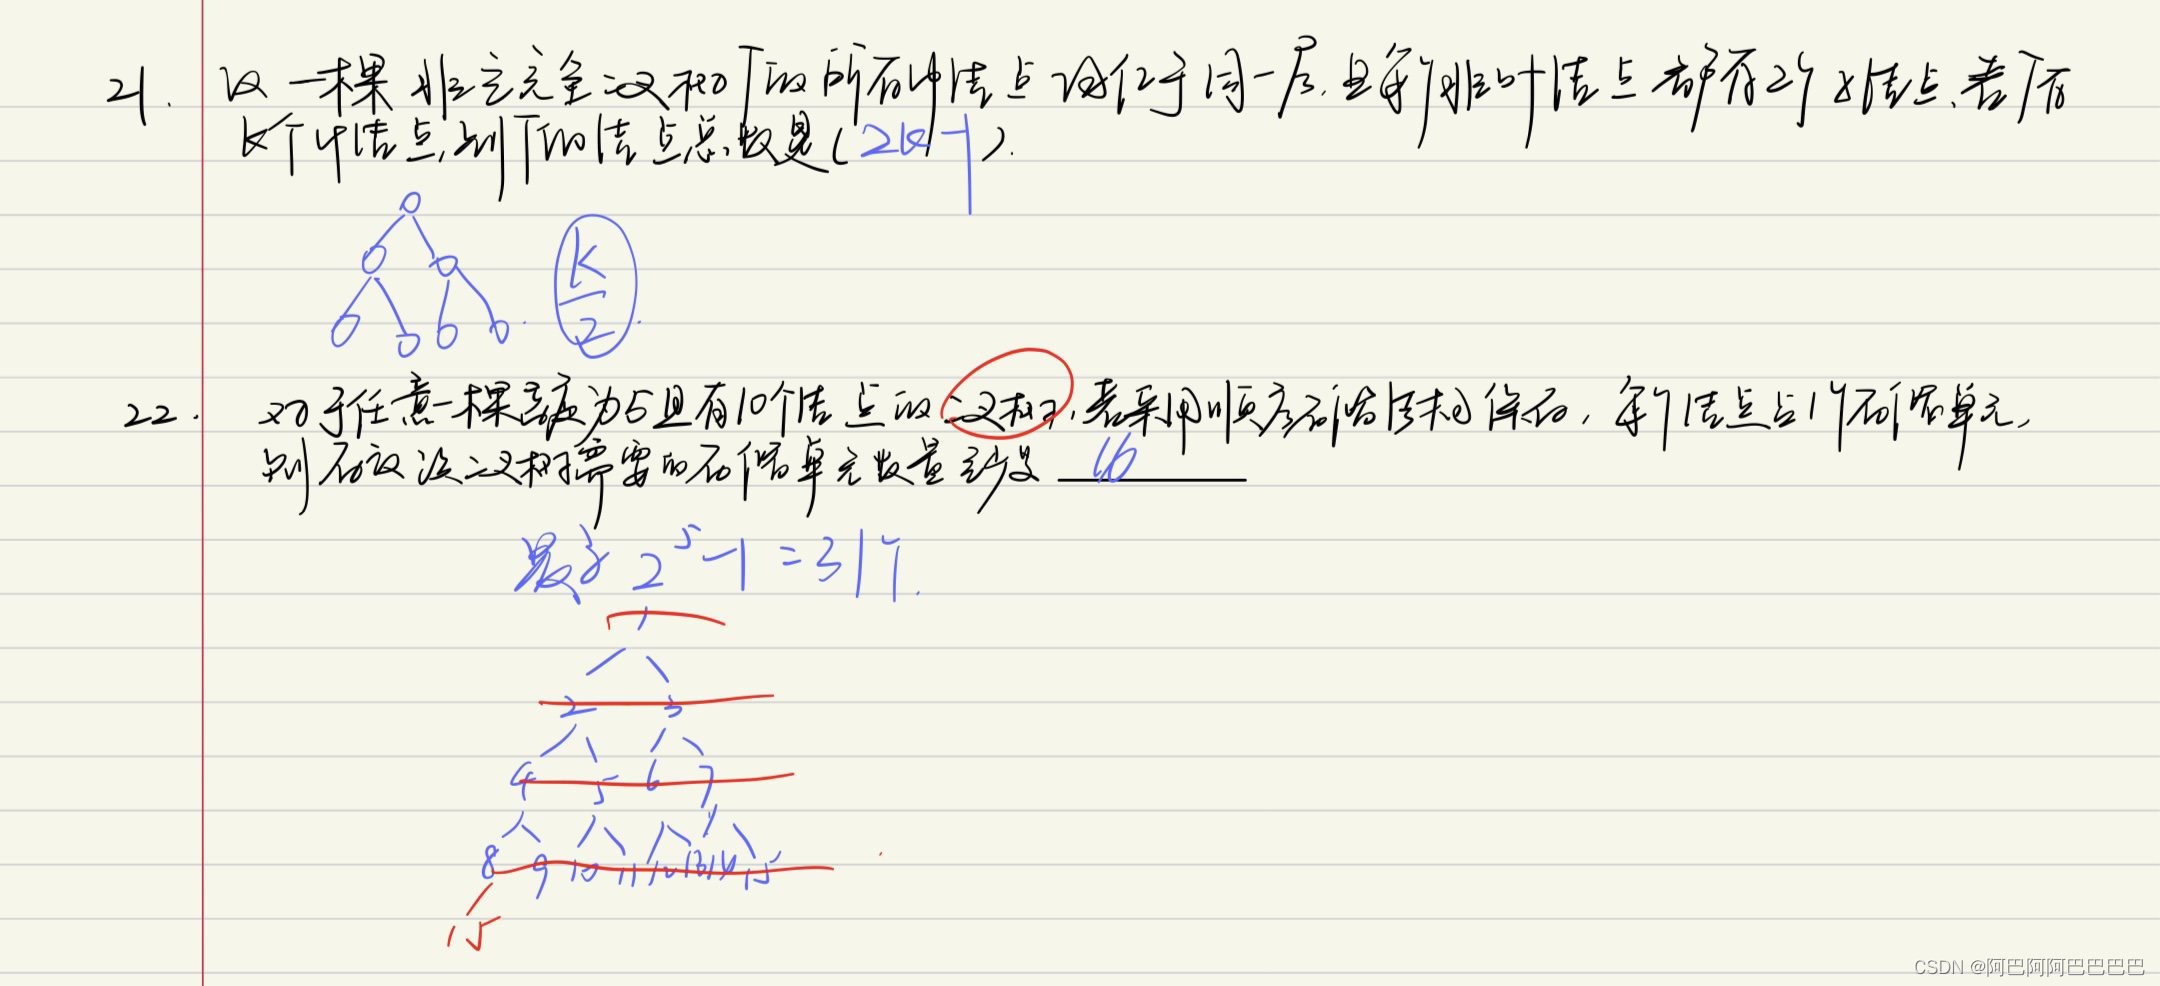 21. 设一棵非空完全二叉树T的所有叶结点均位于同一层,且每个非叶结点都有2个子结点.若T有
k个叶结点,则T的结点总数是(2k-1).
k
2
22. 对于任意一棵高度为5且有10个结点的二叉树,若采用顺序存储结构保存,每个结点占1个存储单元,
则存放该二叉树需要的存储单元数量至少是 16
最多 2^5-1=31个.
1
2 3
4 5 6 7
8 9 10 11 12 13 14 15
15
CSDN @阿巴阿阿巴巴巴巴